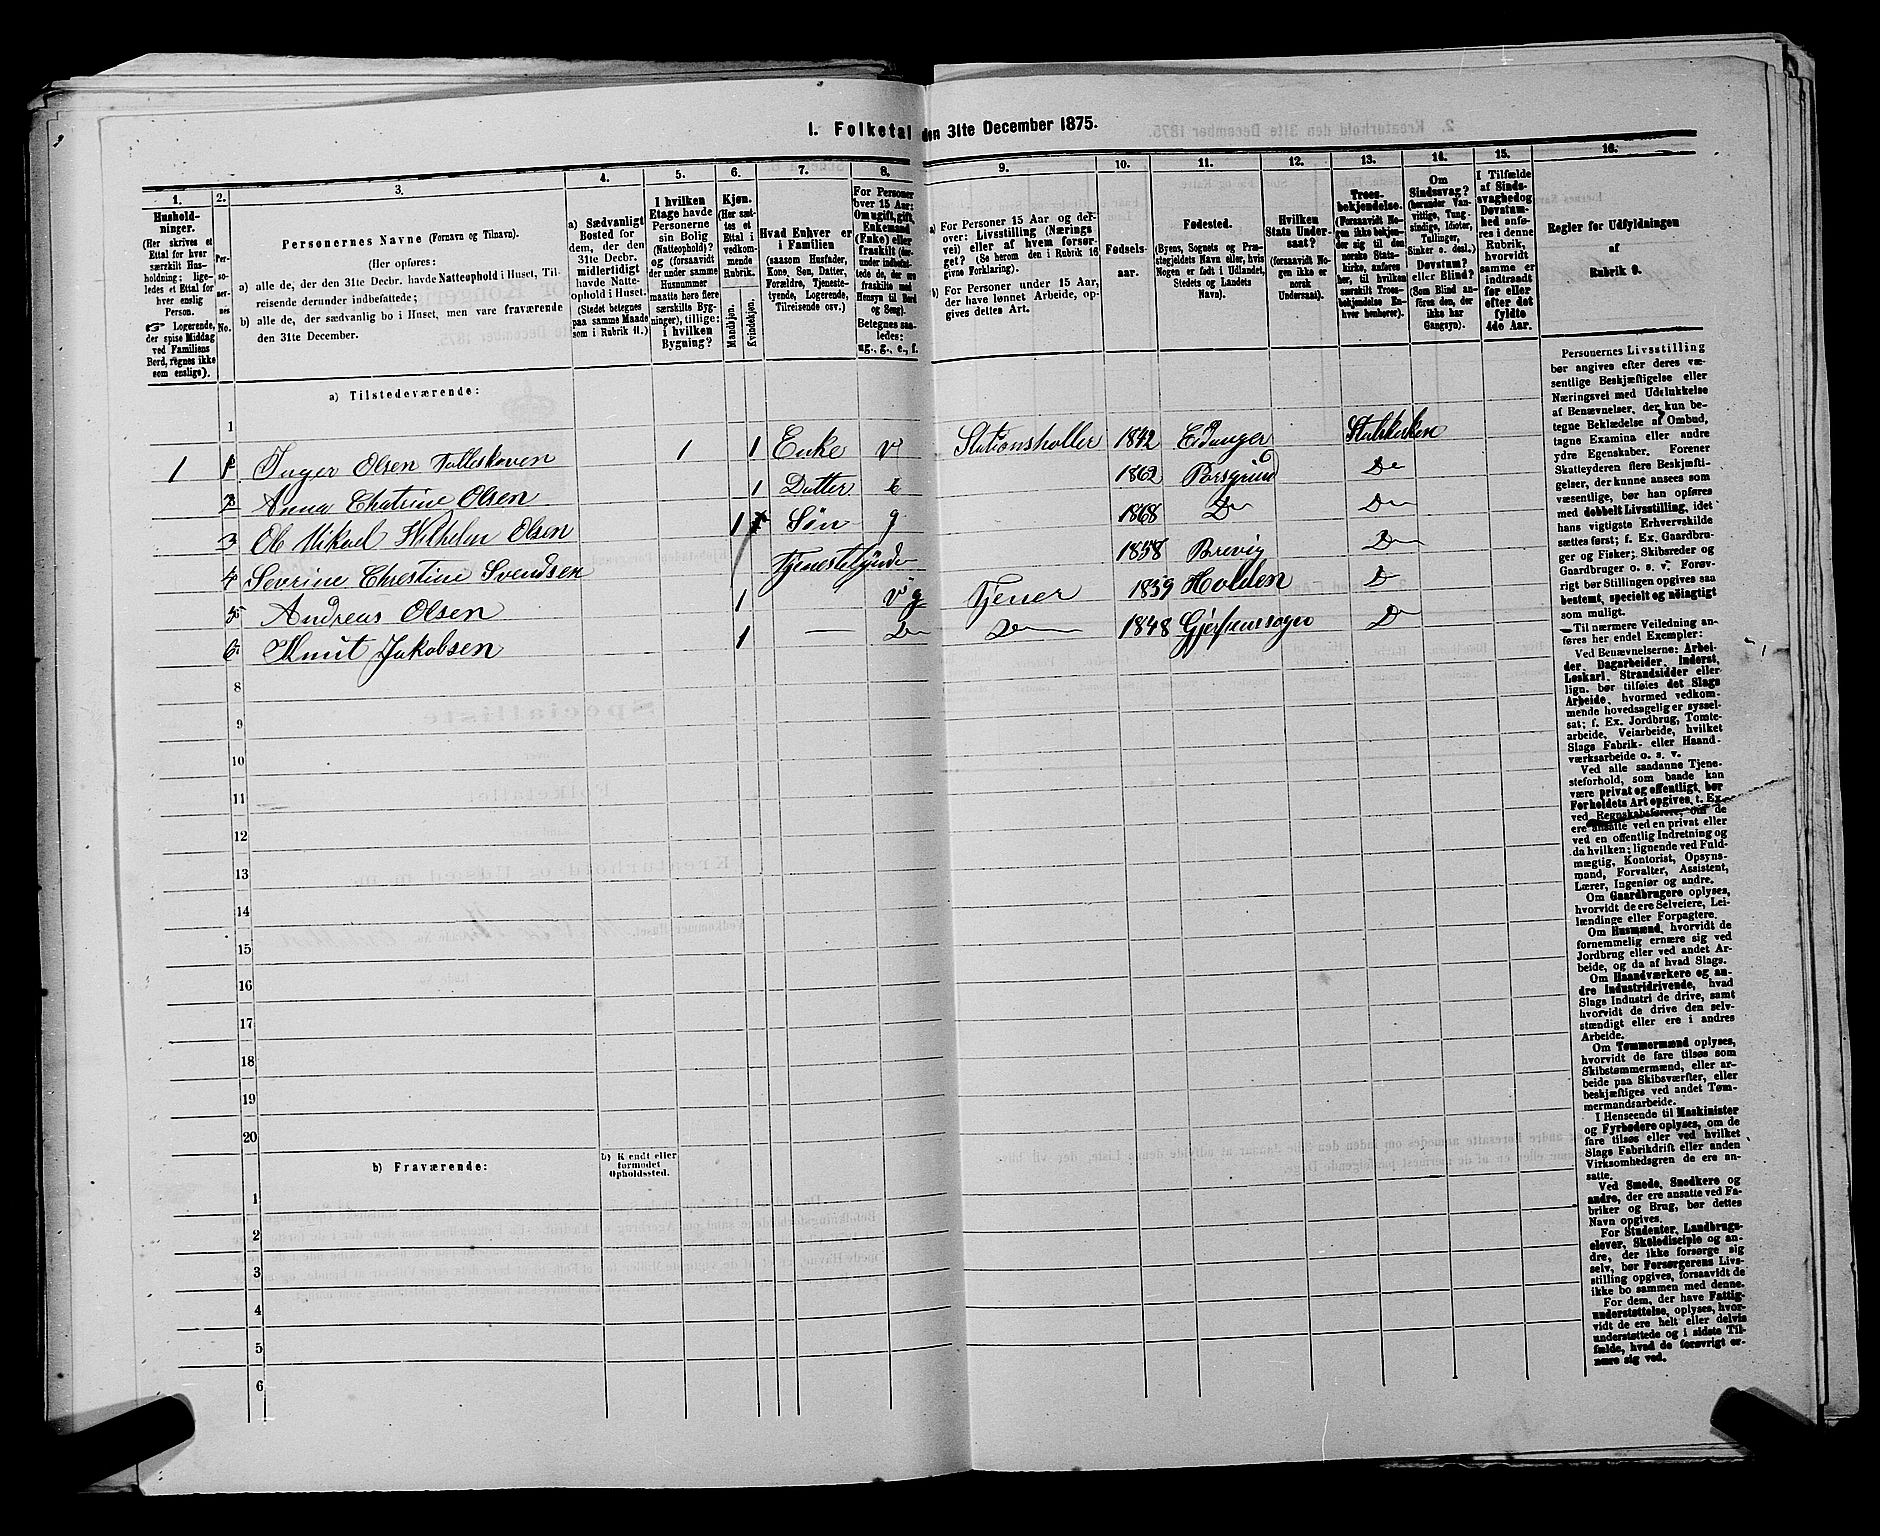 I. Folketal den 31te December 1875.
1. 2. 3. 4. 5. 6. 7. 8. 9. 10. 11. 12. 13. 14. 15. 16.
Husholdninger.
(Her skrives et
Ettal for hver
særskilt Husholdning;
ligeledes et Ettal for
hver enslig
Person.
☞ Logerende,
der spise Middag
ved Familiens
Bord, regnes ikke
som enslige).
Personernes No.
Personernes Navne (Fornavn og Tilnavn).
(Her opføres:
a) alle de, der den 31te Decbr. havde Natteophold i Huset, Tilreisende derunder indbefattede;
b) alle de, der sædvanlig bo i Huset, men vare fraværende
den 31te December.
a) Sædvanligt
Bosted for
dem, der den
31te Decbr.
midlertidigt
havde Natteophold i Huset.
(Stedet betegnes
paa samme Maade
som i Rubrik 11.)
I hvilken
Etage havde
Personerne
sin Bolig
(Natteophold)?
og (forsaavidt
der under samme
Husnummer
maatte høre flere
særskilte Bygninger), tillige:
i hvilken
Bygning?
Kjøn.
(Her sættes et
Ettal i
vedkommende
Rubrik.
Mandkjøn.
Kvindekjøn.
Hvad Enhver er
i Familien
(saasom Husfader,
Kone, Søn, Datter,
Forældre, Tjenestetyende, Logerende,
Tilreisende osv.)
For Personer
over 15 Aar:
Om ugift, gift,
Enkemand
(Enke) eller
fraskilt
Betegnes saaledes:
ug., g., e., f.
a) For Personer 15 Aar og derover: Livsstilling (Næringsvei) eller af hvem forsørget? (Se herom den i Rubrik 16
givne Forklaring).
b) For Personer under 15 Aar,
der have lønnet Arbeide, opgives dettes Art.
Fødselsaar.
Fødested.
(Byens, Sognets og Præstegjeldets Navn eller, hvis
Nogen er født i Udlandet,
Stedets og Landets
Navn).
Hvilken
Stats Undersaat?
(forsaavidt Nogen ikke er
norsk
Undersaat).
Troesbekjendelse.
(Forsaavidt Nogen ikke bekjender sig til den
norske Statskirke, anføres
her, til hvilken
særskilt Troesbekjendelse Enhver henhører).
Om
Sindssvag?
(herunder Vanvittige, Tungsindige, Idioter,
Tullinger,
Sinker o. desl.)
Døvstum?
eller Blind?
(Som Blind anføres den, der
ikke har
Gangsyn).
I Tilfælde
af Sindssvaghed og
Døvstumhed anføres i denne
Rubrik,
hvorvidt
samme er
indtraadt
før eller
efter det
fyldte
4de Aar.
Regler for Udfyldningen
af
Rubrik 9.
a) Tilstedeværende:
1
1 1 Inger Olsen Talleskoven 1 1 Enke Stationsholler 1842 Eidanger Statskirken
2 Anna Chatrine Olsen 1 Datter 1862 Porsgrund Do
3 Ole Mikael Wilhelm Olsen 1 Søn g 1868 Do Do
4 Sevrine Chrestine Svendsen 1 Tjenestetynde 1858 Brevig Do
5 Andreas Olsen 1 Tjener 1859 Holden Do
6 Knut Jakobsen 1 — Do Do 1848 Do
8
9
10
11
12
13
14
15
16
17
18
19
20
b) Fraværende:
b) Kjendt eller
formodet
Opholdssted.
1
2
3
4
5
6
Personernes Livsstilling
bør angives efter deres væsentlige Beskjæftigelse eller
Næringsvei med Udelukkelse
af Benævnelser, der kun betegne Beklædelse af Ombud,
tagne Examina eller andre
ydre Egenskaber. Forener
Skatteyderen flere Beskjæftigelser, der kunne ansees som
væsentlige, bør han opføres
med dobbelt Livsstilling, idet
hans vigtigste Erhvervskilde
sættes først; f. Ex. Gaardbruger og Fisker; Skibsreder og
Gaardbruger o. s. v. Forøvrigt bør Stillingen opgives saa
bestemt, specielt og nøiagtigt
som muligt.
Til nærmere Veiledning anføres her endel Exempler:
Ved Benævnelserne: Arbeider, Dagarbeider, Inderst,
Løskarl, Strandsidder eller
lign. bør tilføies det Slags
Arbeide, hvormed vedkommende hovedsagelig er sysselsat; f. Ex. Jordbrug, Tomtearbeide, Veiarbeide, hvilket
Slags Fabrik- eller Haandværksarbeide o. s. v.
Ved alle saadanne Tjenesteforhold, som baade kan
være privat og offentligt, bør
Forholdets Art opgives, f. Ex.
ved Regnskabsførere, om de
ere ansatte ved en privat eller
ved en offentlig Indretning og
da hvilken; lignende ved Fuldmægtig, Kontorist, Opsynsmand, Forvalter, Assistent,
Lærer, Ingeniør og andre.
Om Gaardbrugere oplyses,
hvorvidt de ere Selveiere, Leilændinge eller Forpagtere.
Om Husmænd, hvorvidt de
fornemmelig ernære sig ved
Jordbrug eller ved andet Arbeide, og da af hvad Slags.
Om Haandværkere og andre Industridrivende, hvad
Slags Industri de drive, samt
hvorvidt de drive den selvstændigt eller ere i andres
Arbeide.
Om Tømmermænd oplyses,
hvorvidt de fare tilsøs som
Skibstømmermænd, eller arbeide paa Skibsværfter, eller
beskjæftiges ved andet Tømmermandsarbeide.
I Henseende til Maskinister
og Fyrbødere oplyses, om de
fare tilsøs eller ved hvilket
Slags Fabrikdrift eller anden
Virksomhedsgren de ere ansatte.
Ved Smede, Snedkere og
andre, der ere ansatte ved Fabriker og Brug, bør dettes
Navn opgives.
For Studenter, Landbrugselever, Skoledisciple og andre, der ikke forsørge sig
selv, bør Forsørgerens Livsstilling opgives, forsaavidt de
ikke bo sammen med denne.
For dem, der have Fattigunderstøttelse, oplyses, hvorvidt de ere helt eller delvis
understøttede og i sidste Tilfælde, hvad de forøvrigt ernære sig ved.